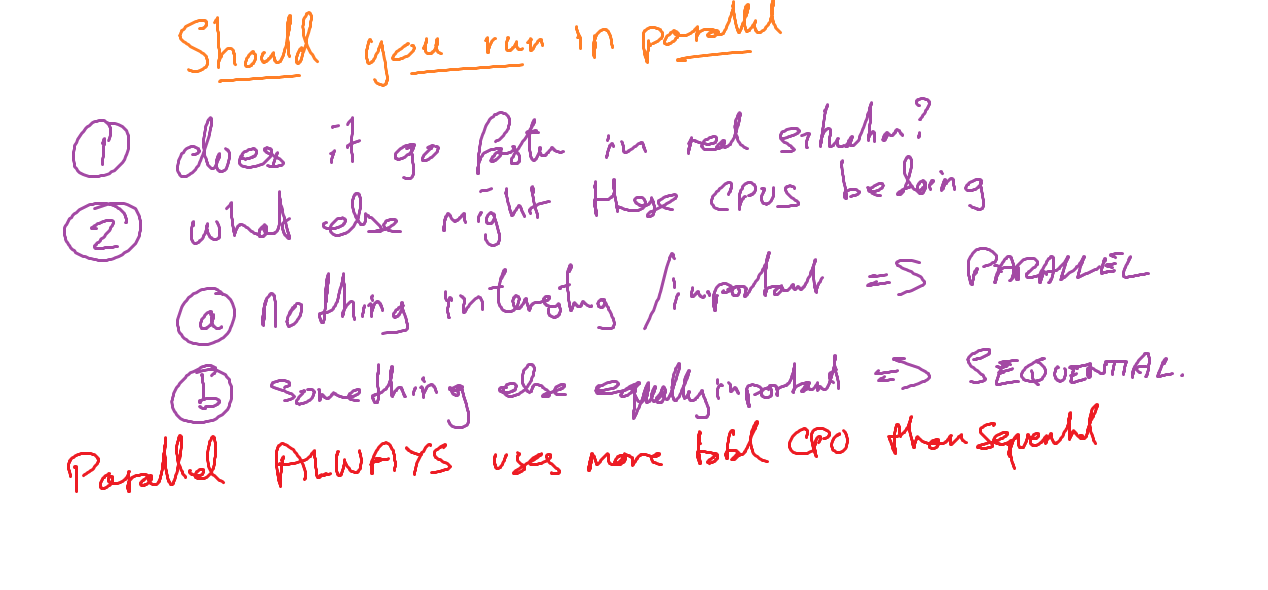 Should you run in parallel
① does it go faster in real situation?
② what else might these CPUS be doing
ⓐ nothing interesting / important => PARALLEL
ⓑ something else equally important => SEQUENTIAL.
Parallel ALWAYS uses more total CPU than sequential